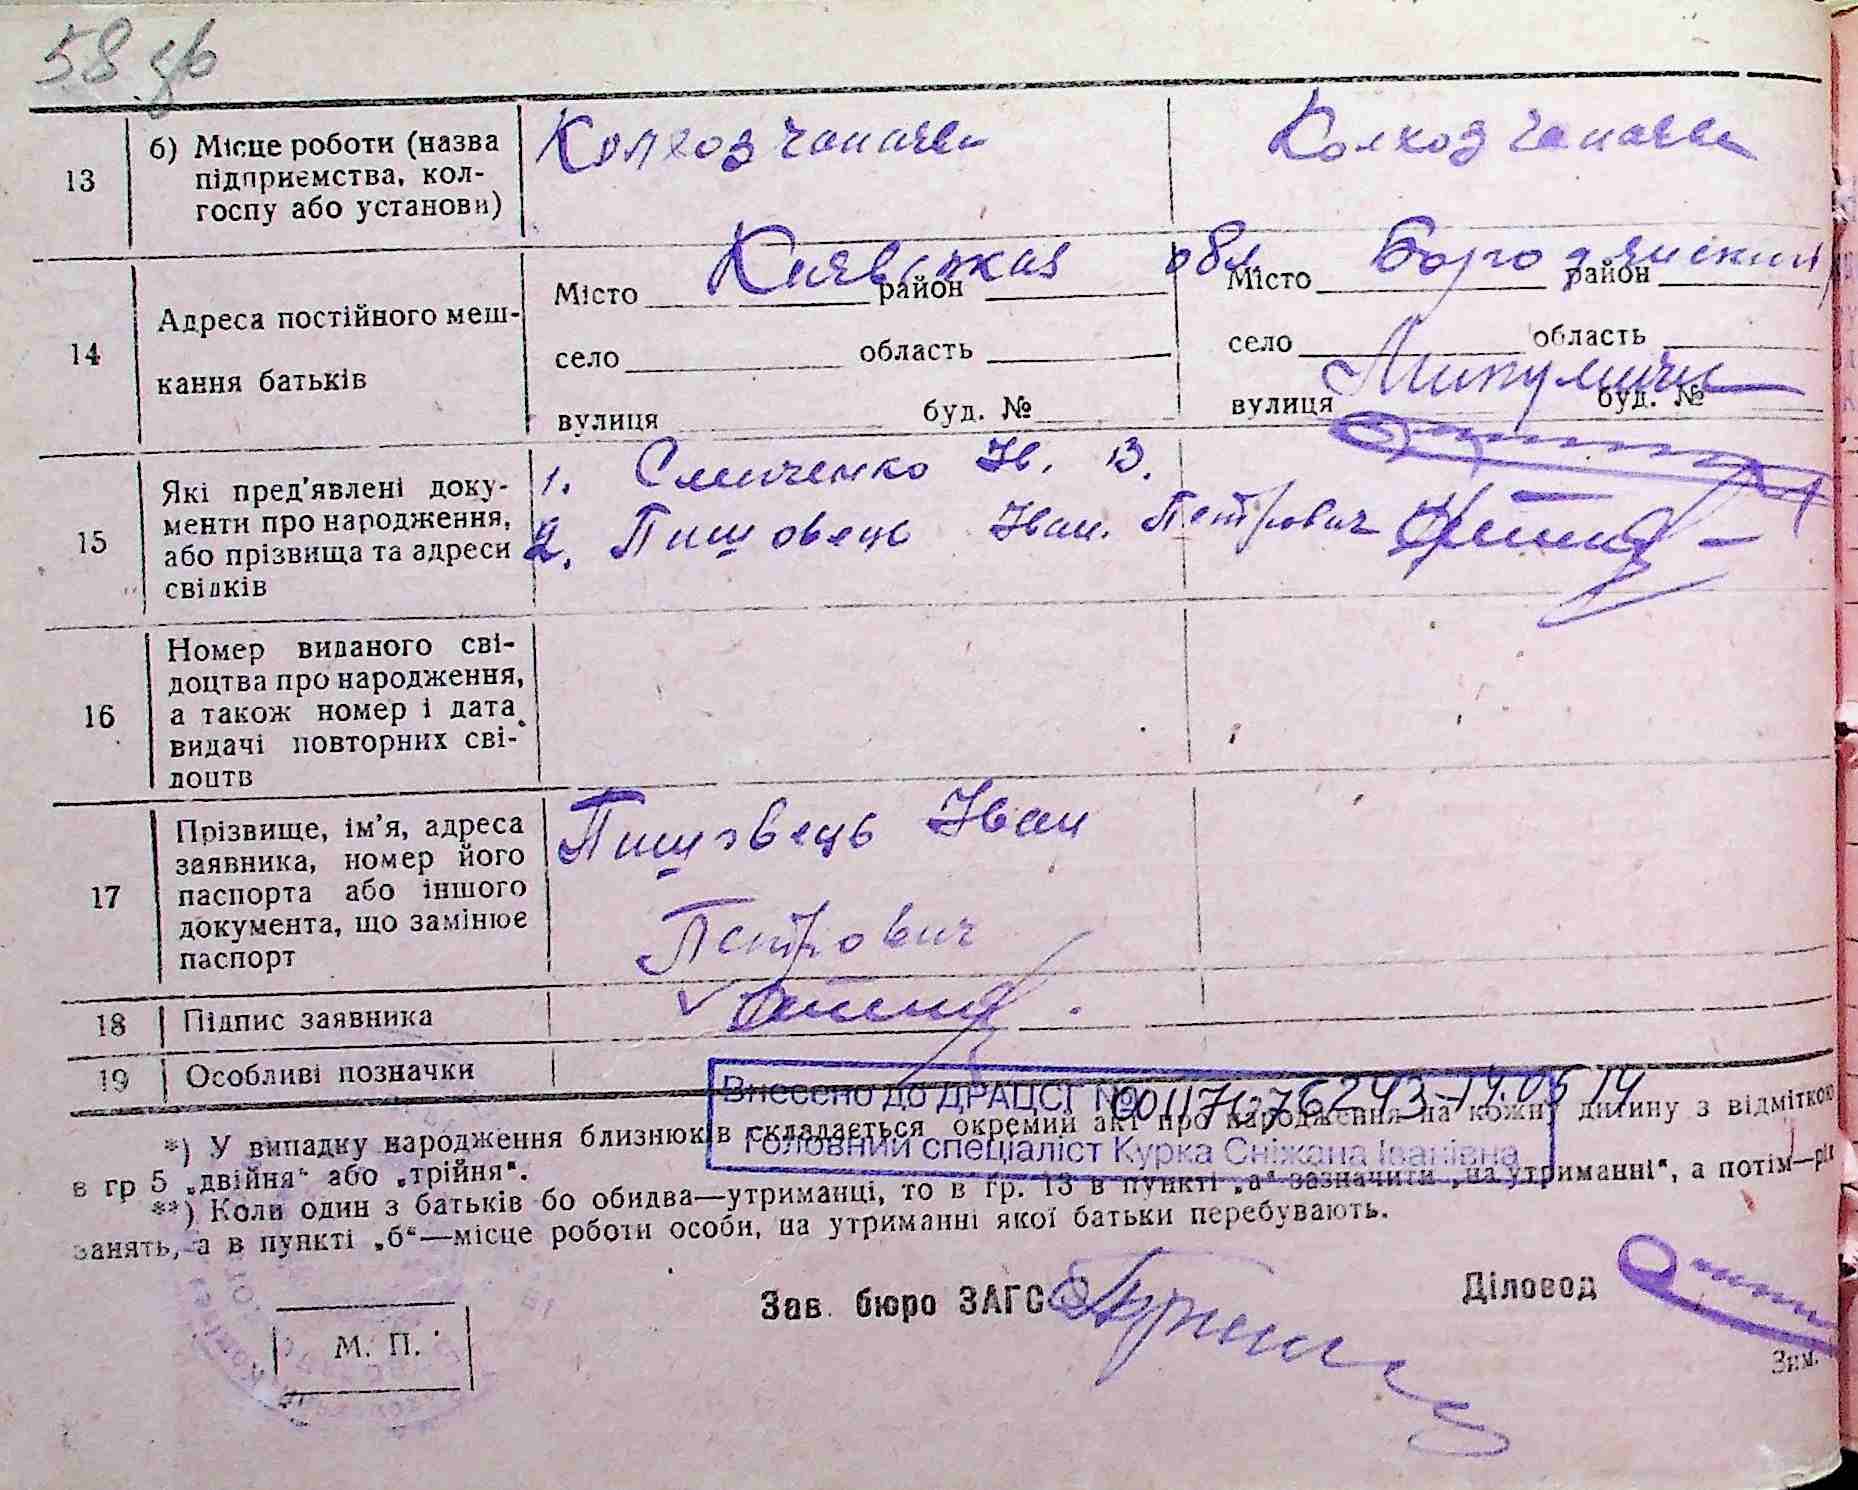 58 зв
13 б) Місце роботи (назва підприємства, колгоспу або установи) Колхоз Чапаєва Колхоз Чапаєва
Киевская обл Бородянский
14 Адреса постійного мешкання батьків
Місто район Місто район
село область село область
Микуличи
вулиця буд. № вулиця буд. №
15 Які пред'явлені документи про народження, або прізвища та адреси свідків
1. Ів. В.
2. Пишовець Іван. Петрович
16 Номер виданого свідоцтва про народження, а також номер і дата видачі повторних свідоцтв
17 Прізвище, ім'я, адреса заявника, номер його паспорта або іншого документа, що замінює паспорт
Іван
Петрович
18 Підпис заявника
19 Особливі позначки
Внесено до ДРАЦСГ № 00117676243-14.05.14
Головний спеціаліст Курка Сніжана Іванівна
*) У випадку народження близнюків складається окремий акт про народження на кожну дитину з відміткою
в гр 5 „двійня“ або „трійня“.
**) Коли один з батьків бо обидва—утриманці, то в гр. 13 в пункті „а“ зазначити „на утриманні“, а потім—рід
занять, а в пункті „б“—місце роботи особи, на утриманні якої батьки перебувають.
Зав. бюро ЗАГС Діловод
М. П.
Зим.